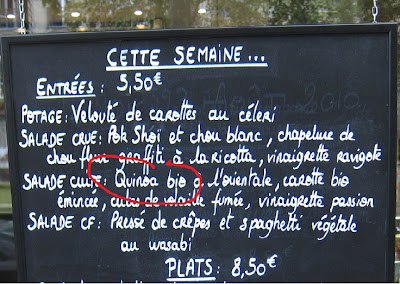 CETTE SEMAINE...
ENTRÉES: 5,50€
POTAGE: Velouté de carottes au céleri
SALADE CRUE: Pok Shoï et chou blanc, chapelure de
chou fleur graffiti à la ricotta, vinaigrette ravigote
SALADE CUITE: Quinoa bio à l'orientale, carotte bio
émincée, de volaille fumée, vinaigrette passion
SALADE CF: Pressé de crêpes et spaghetti végétale
au wasabi
PLATS: 8,50€